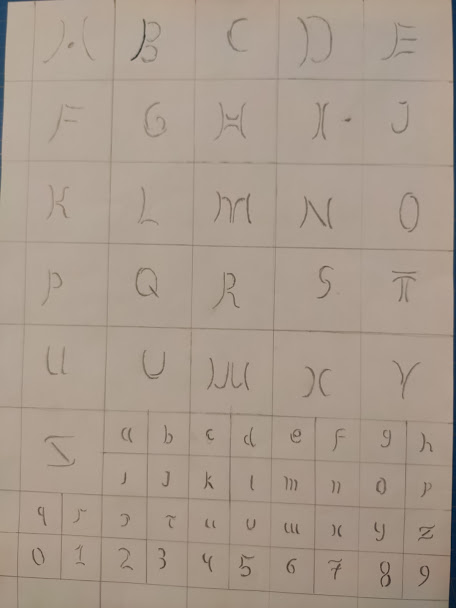 A B C D E
F G H I J
K L M N O
P Q R S T
U V W X Y
Z a b c d e f g h
i j k l m n o p
q r s t u v w x y z
0 1 2 3 4 5 6 7 8 9